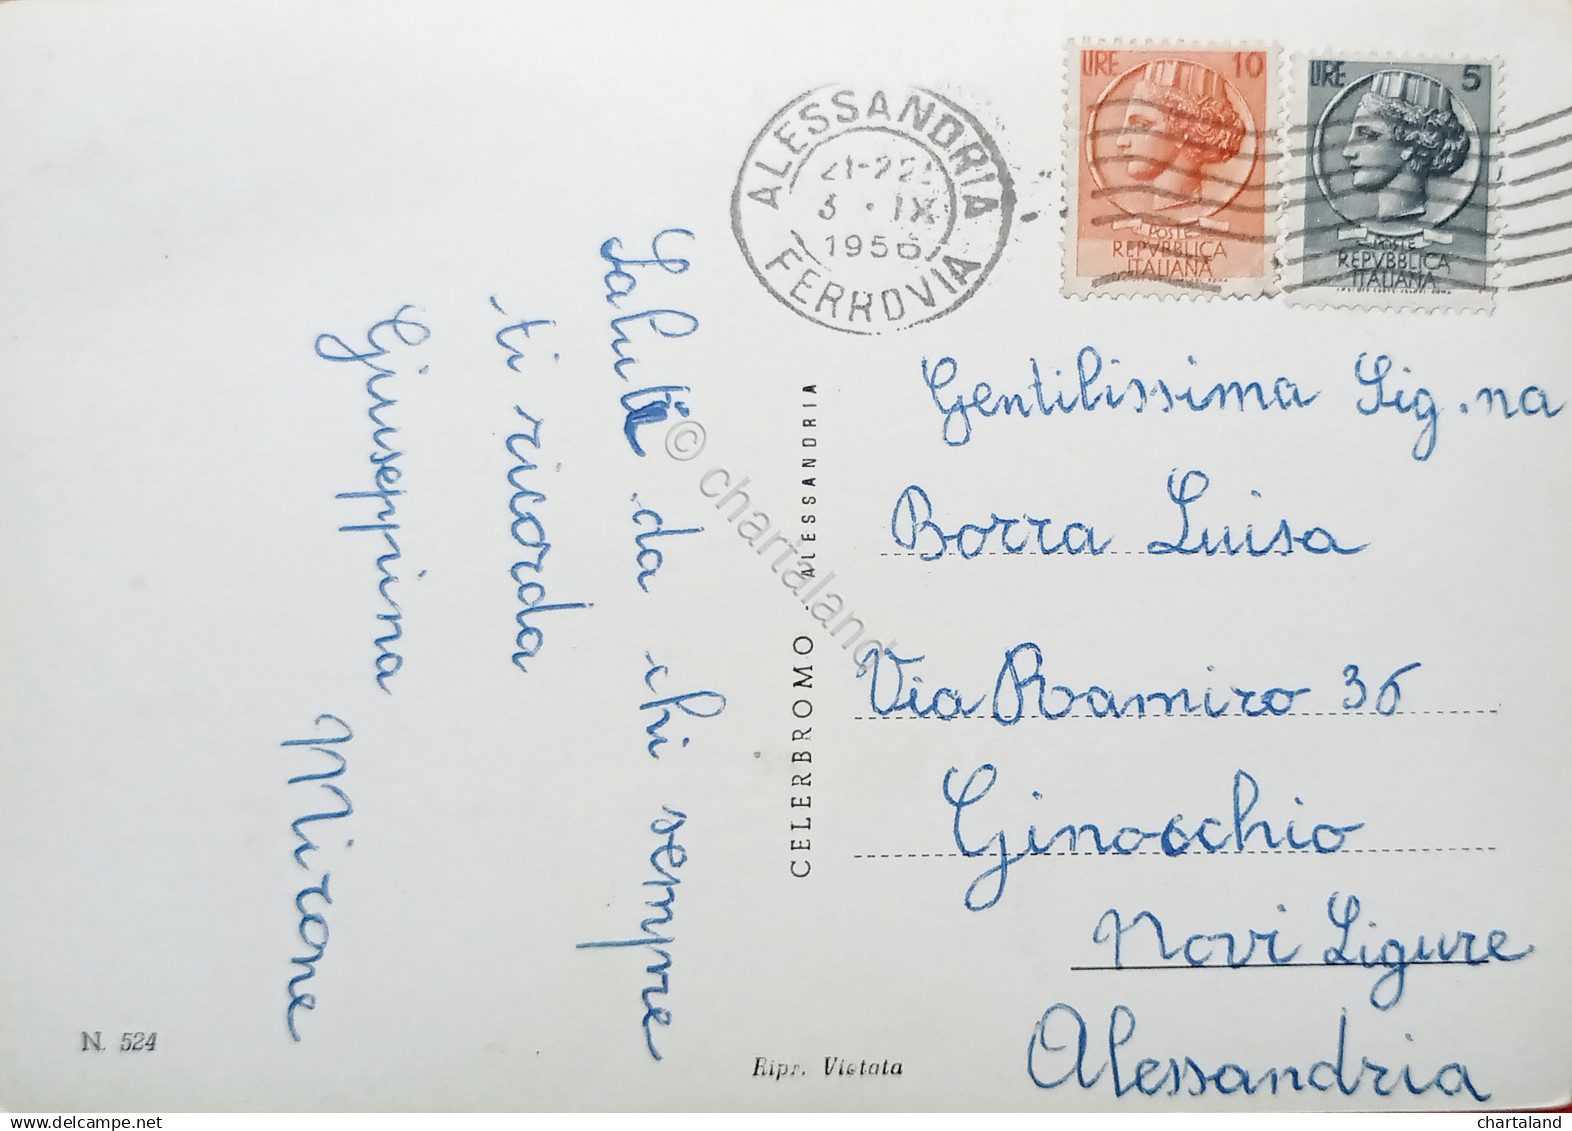 Saluti da chi sempre
ti ricorda
Giuseppina
Mirone
N. 524
CELERBROMO - ALESSANDRIA
Ripr. Vietata
ALESSANDRIA
21-22
3 · IX
1956
FERROVIA
LIRE 10
POSTE
REPVBBLICA
ITALIANA
LIRE 5
POSTE
REPVBBLICA
ITALIANA
Gentilissima Sig.na
Borra Luisa
Via Ramiro 36
Ginocchio
Novi Ligure
Alessandria
© chartaland
chartaland